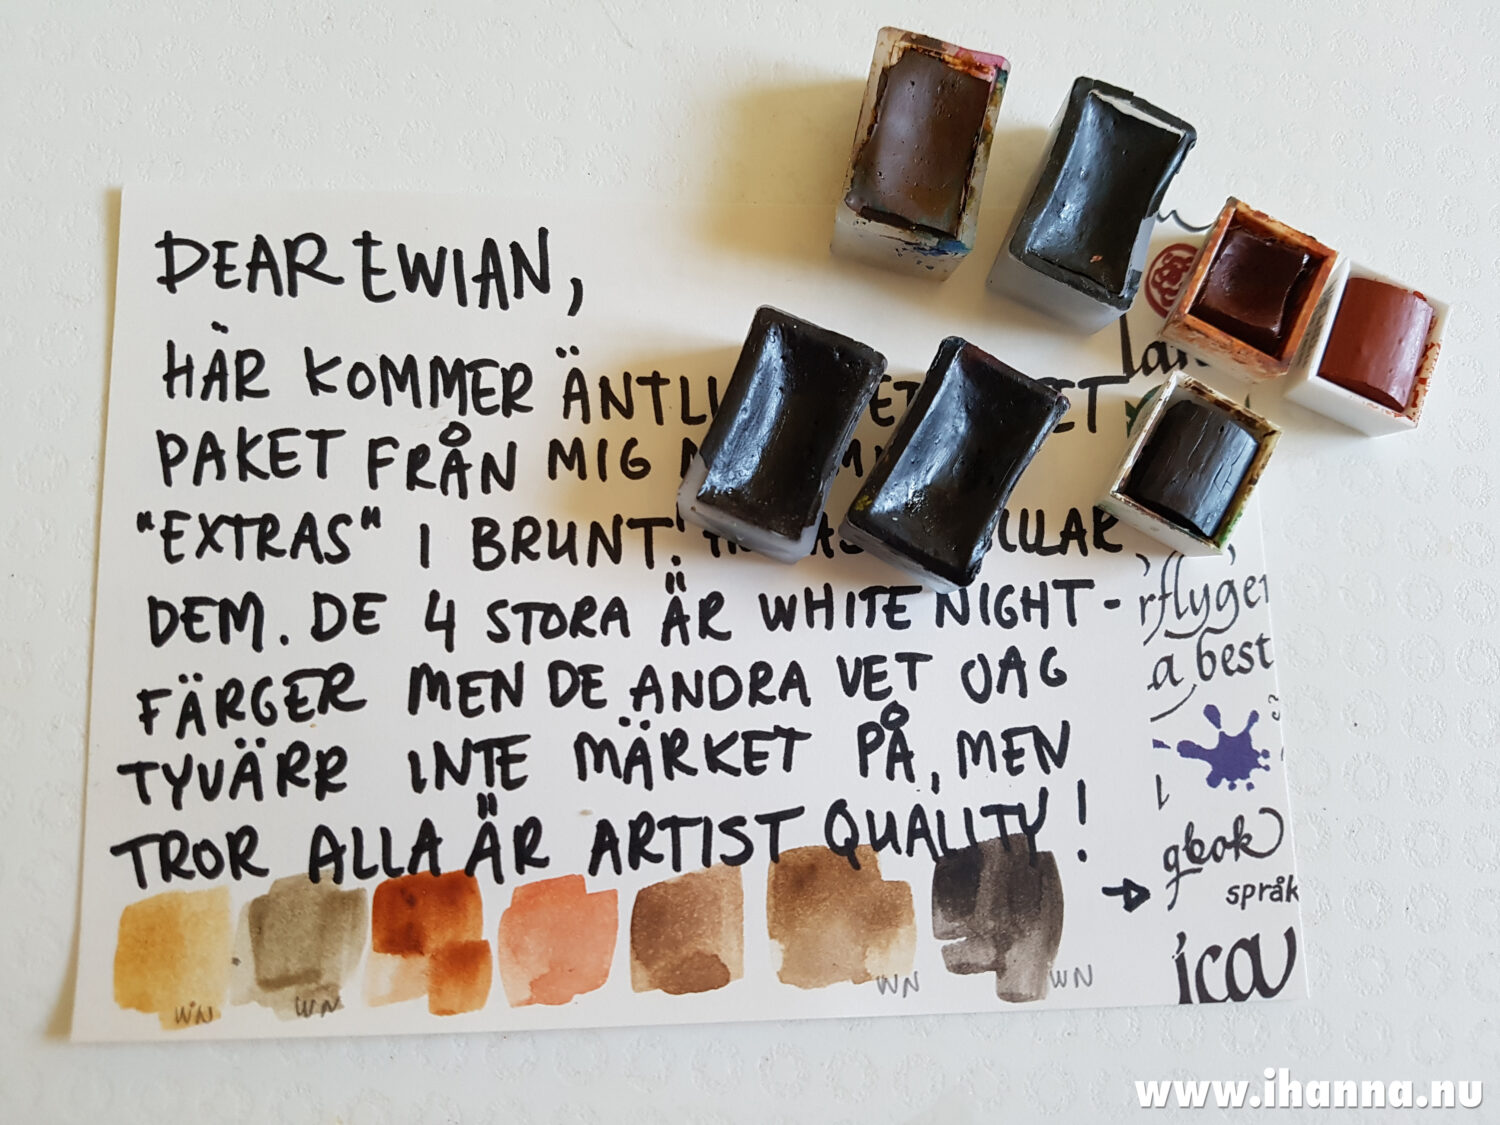 DEAR EWIAN,
HÄR KOMMER ÄNTLI ET
PAKET FRÅN MIG
"EXTRAS" I BRUNT!
DEM. DE 4 STORA ÄR WHITE NIGHT-
FÄRGER MEN DE ANDRA VET JAG
TYVÄRR INTE MÄRKET PÅ, MEN
TROR ALLA ÄR ARTIST QUALITY!
WN WN WN WN
rflyger
a best
språk
www.ihanna.nu